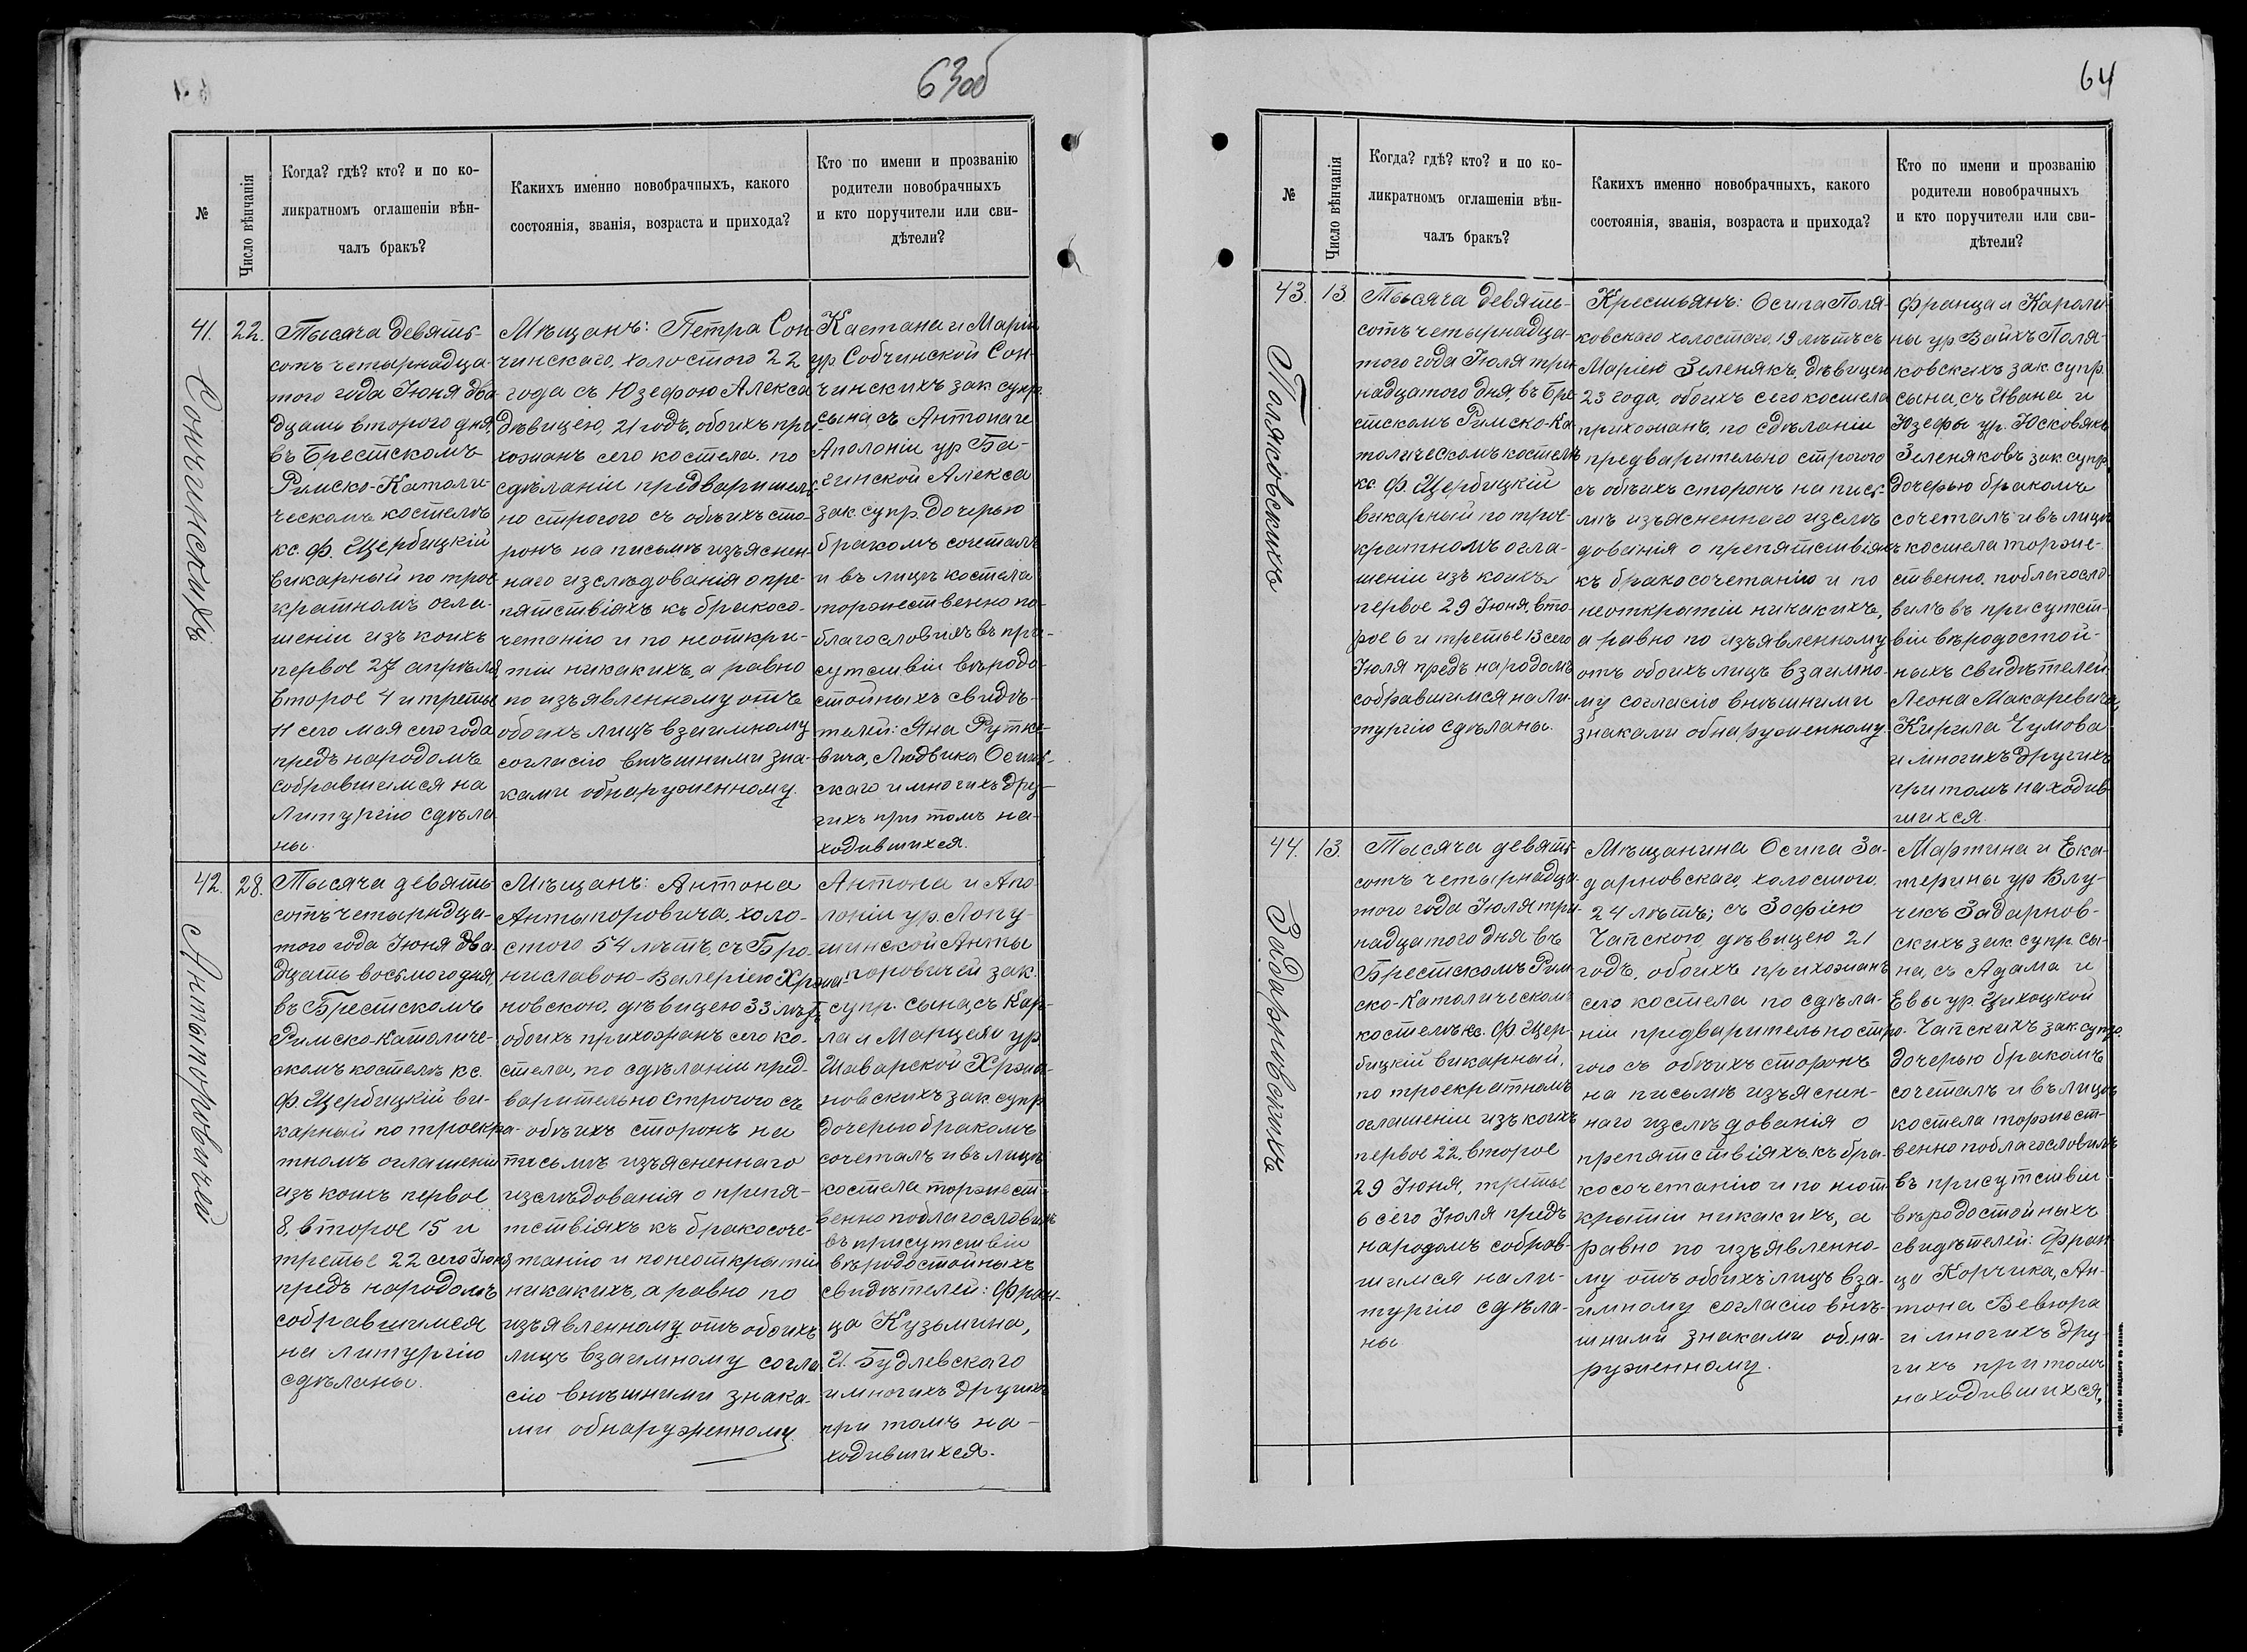 63об
№
Число вѣнчанія
Когда? гдѣ? кто? и по ко-
ликратномъ оглашеніи вѣн-
чалъ бракъ?
Какихъ именно новобрачныхъ, какого
состоянія, званія, возраста и прихода?
Кто по имени и прозванію
родители новобрачныхъ
и кто поручители или сви-
дѣтели?
41.
Сончинскихъ
22.
Тысяча девять-
сотъ четырнадца-
того года Іюня два-
дцать второго дня,
въ Брестскомъ
Римско-Католи-
ческомъ костелѣ
кс. Ф. Щербицкій
викарный по трое-
кратномъ огла-
шеніи изъ коихъ
первое 27 апрѣля,
второе 4 и третье
11 сего мая сего года
предъ народомъ
собравшимся на
Литургію сдѣла
ны.
Мѣщанъ: Петра Сон
чинскаго, холостого 22
года съ Юзефою Алекса
дѣвицею, 21 годъ, обоихъ при-
хожанъ сего костела. по
сдѣланіи предваритель-
но строгого съ обѣихъ сто-
ронъ на письмѣ изъяснен-
наго изслѣдованія о пре-
пятствіяхъ къ бракосо-
четанію и по неоткры-
тіи никакихъ, а равно
по изъявленному отъ
обоихъ лицъ взаимному
согласію внѣшними зна-
ками обнаруженному.
Каетана и Маріи
ур. Собчинской Сон-
чинскихъ зак. супр.
сына, съ Антона и
Аполоніи ур Ба-
гинской Алекса
зак. супр. дочерью
бракомъ сочеталъ
и въ лицѣ костела
торжественно по-
благословилъ въ при-
сутствіи вѣродо-
стойныхъ свидѣ-
телей: Яна Рутке-
вича, Людвика Осип-
скаго и многихъ дру-
гихъ при томъ на-
ходившихся.
42.
Антыпоровичей
28.
Тысяча девять
сотъ четырндца-
того года Іюня два-
дцать восьмого дня,
въ Брестскомъ
Римско-Католиче-
скомъ костелѣ кс.
Ф. Щербицкій ви-
карный по троекра-
тномъ оглашеніи
изъ коихъ первое
8, второе 15 и
третье 22 сего Іюня
предъ народомъ
собравшимся
на литургію
сдѣланы.
Мѣщанъ: Антона
Антыпоровича, холо-
стого 54 лѣтъ, съ Бро-
ниславою-Валеріею Хржа-
новскою, дѣвицею 33 лѣтъ
обоихъ прихожанъ сего ко-
стела, по сдѣланіи пред-
варительно строгого съ
обѣихъ сторонъ на
письмѣ изъясненнаго
изслѣдованія о препя-
тствіяхъ къ бракосоче-
танію и по неоткрытіи
никакихъ, а равно по
изъявленному отъ обоихъ
лицъ взаимному согла
сію внѣшними знака-
ми обнаруженному.
Антона и Апо-
лоніи ур. Лопу-
шинской Анты
поровичей зак.
супр. сына, съ Кар-
ла и Марцели ур.
Шаварской Хржа-
новскихъ зак. супр.
дочерью бракомъ
сочеталъ и въ лицѣ
костела торжест-
венно поблагословилъ
въ присутствіи
вѣродостойныхъ
свидѣтелей: Фран-
ца Кузьмина,
И. Будлевскаго
и многихъ другихъ
при томъ на-
ходившихся.
64
№
Число вѣнчанія
Когда? гдѣ? кто? и по ко-
ликратномъ оглашеніи вѣн-
чалъ бракъ?
Какихъ именно новобрачныхъ, какого
состоянія, званія, возраста и прихода?
Кто по имени и прозванію
родители новобрачныхъ
и кто поручители или сви-
дѣтели?
43.
Поляковскихъ
13
Тысяча девять-
сотъ четырнадца-
того года Іюля три-
надцатого дня, въ Бре
стскомъ Римско-Ка
толическомъ костелѣ
кс. Ф. Щербицкій
викарный по трое-
кратномъ огла-
шеніи изъ коихъ
первое 29 Іюня, вто-
рое 6 и третье 13 сего
Іюля предъ народомъ
собравшимся на Ли-
тургію сдѣланы.
Крестьянъ: Осипа Поля-
ковскаго холостого, 19 лѣтъ съ
Маріею Зеленякъ, дѣвицею
23 года, обоихъ сего костела
прихожанъ, по сдѣланіи
предварительно строгого
съ обѣихъ сторонъ на пись-
мѣ изъясненнего изслѣ
дованія о препятствіяхъ
къ бракосочетанію и по
неоткрытіи никакихъ,
а равно по изъявленному
отъ обоихъ лицъ взаимно-
му согласію внѣшними
знаками обнаруженному.
Франца и Кароли-
ны ур Вайхъ Поля-
ковскихъ зак. супр.
сына, съ Ивана и
Юзефы ур. Юсковякъ
Зеленяковъ зак супр.
дочерью бракомъ
сочеталъ и въ лицѣ
костела торже-
ственно поблагосло-
вилъ въ присутст-
віи вѣродостой-
ныхъ свидѣтелей
Леона Макаревича,
Кирила Чумова
и многихъ другихъ
при томъ находив-
шихся.
44.
Задарновскихъ
13.
Тысяча девять-
сотъ четырнадца-
того года Іюля три-
надцатого дня въ
Брестскомъ Рим
ско-Католическомъ
костелѣ кс. Ф. Щер-
бицкій викарный,
по троекратномъ
оглашеніи изъ коихъ
первое 22, второе
29 Іюня, третье
6 сего Іюля предъ
народомъ собрав-
шимся на ли-
тургію сдѣла-
ны
Мѣщанина Осипа За-
дарновскаго, холостого,
24 лѣтъ; съ Зофіею
Чапскою, дѣвицею 21
годъ, обоихъ прихожанъ
сего костела по сдѣла-
ніи предварительно стро-
гого съ обѣихъ сторонъ
на письмѣ изъяснен-
наго изслѣдованія о
препятствіяхъ къ бра-
косочетанію и по неот-
крытіи никакихъ, а
равно по изъявленно-
му отъ обоихъ лицъ вза-
имному согласію внѣ-
шними знаками обна-
руженному.
Мартина и Ека-
терины ур Влу-
чекъ Задарнов-
скихъ зак. супр. сы-
на, съ Адама и
Евы ур. Цихоцкой
Чапскихъ зак. супр.
дочерью бракомъ
сочеталъ и въ лицѣ
костела торжест-
венно поблагословилъ
въ присутствіи
вѣродостойныхъ
свидѣтелей: Фран
ца Корчика, Ан-
тона Вевюра
и многихъ дру-
гихъ при томъ
находившихся,